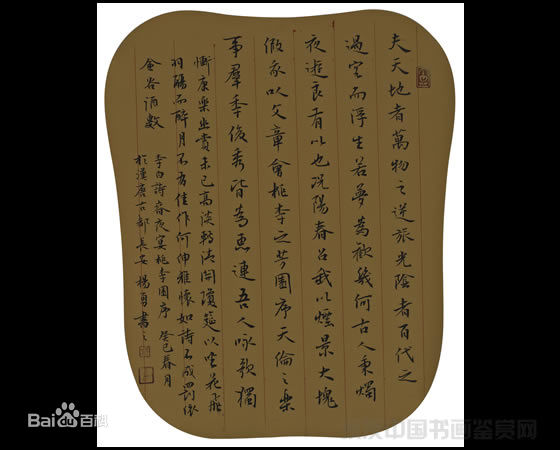 夫天地者萬物之逆旅光陰者百代之
過客而浮生若夢為歡幾何古人秉燭
夜遊良有以也況陽春召我以煙景大塊
假我以文章會桃李之芳園序天倫之樂
事羣季俊秀皆為惠連吾人詠歌獨
慚康樂幽賞未已高談轉清開瓊筵以坐花飛
羽觴而醉月不有佳作何伸雅懷如詩不成罰依
金谷酒數
李白詩春夜宴桃李園序 癸巳春月
於漢唐古都長安楊勇書之
Bai du 百科
中国书画鉴赏网